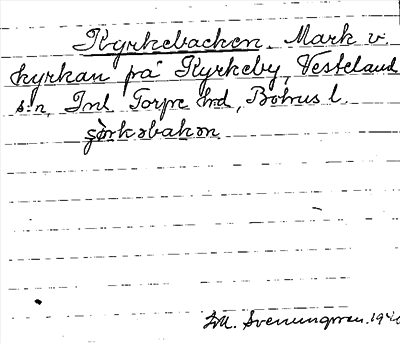 Kyrkebacken. Mark v.
kyrkan på Kyrkeby, Västeland
s:n, Inl Torpe hd, Bohus l.
çỳrkəbakən
Svenungsson. 1940